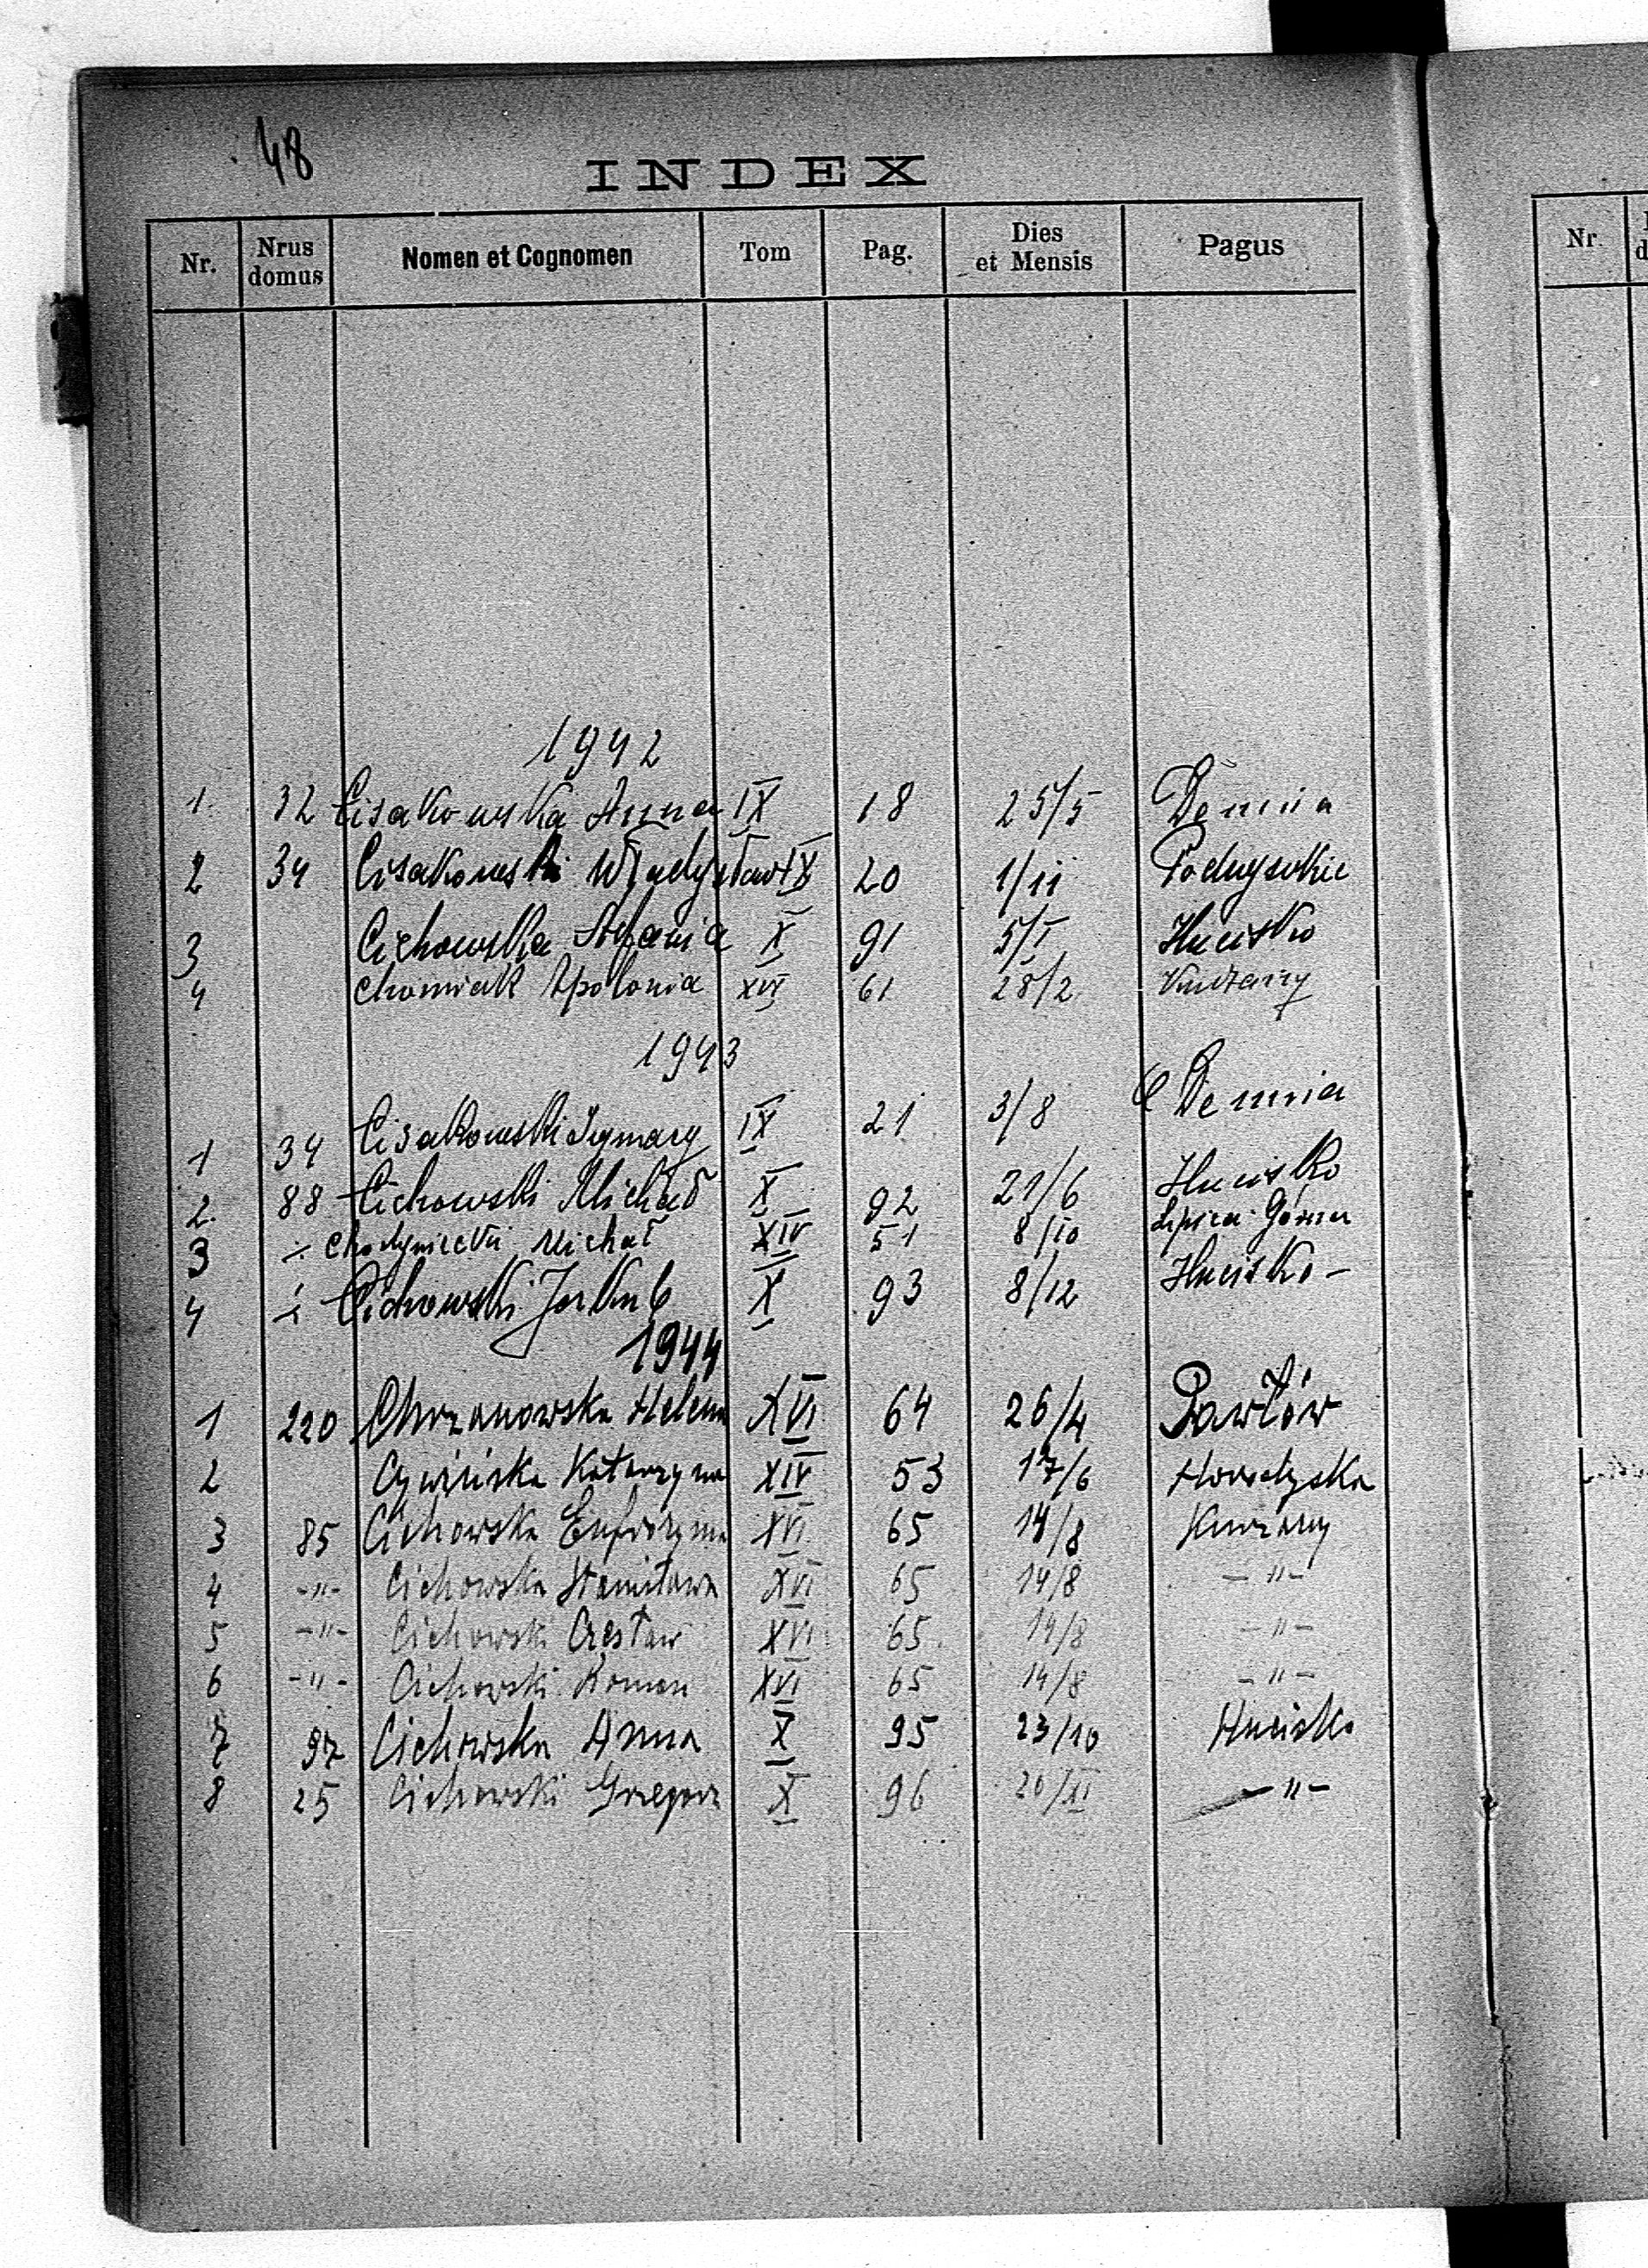 48
INDEX
Nr. Nrus domus Nomen et Cognomen Tom Pag. Dies et Mensis Pagus Nr.
1942
1. 32 Cisakowska Anna IX 18 25/5 Demnia
2 34 Cisakowski Władysław IX 20 1/11 Podwysokie
3 Cichowska Stefania X 91 5/I Hucisko
4 Chomiak Apolonia XVI 61 28/2
1943
1 34 Cisakowski Ignacy IX 21 3/8 Demnia
2. 88 Cichowski Michał X 92 21/6 Hucisko
3 Michał XIV 51 8/10 Lipica Górna
4 Cichowski Jakub X 93 8/12 Hucisko -
1944
1 220 Chrzanowska Helena XVI 64 26/4 Pawłów
2 Cywińska Katarzyna XIV 53 17/6
3 85 Cichowska Eufrozyna XVI 65 14/8 Kurzany
4 -"- Cichowska Stanisława XVI 65 14/8 -"-
5 -"- Cichowski Czesław XVI 65 14/8 -"-
6 -"- Cichowski Roman XVI 65 14/8 -"-
7 97 Cichowska Anna X 95 23/10 Hucisko
8 25 Cichowski Grzegorz X 96 20/II -"-